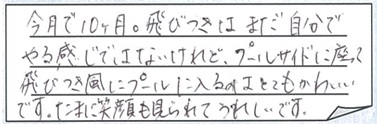 今月で10ヶ月。飛びつきはまだ自分で
やる感じではないけれど、プールサイドに座って
飛びつき風にプールに入るのはとてもかわいい
です。たまに笑顔も見られてうれしいです。